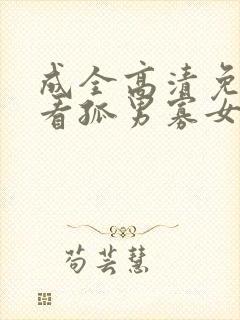 成全高清免
看孤男寡女
苟芸慧